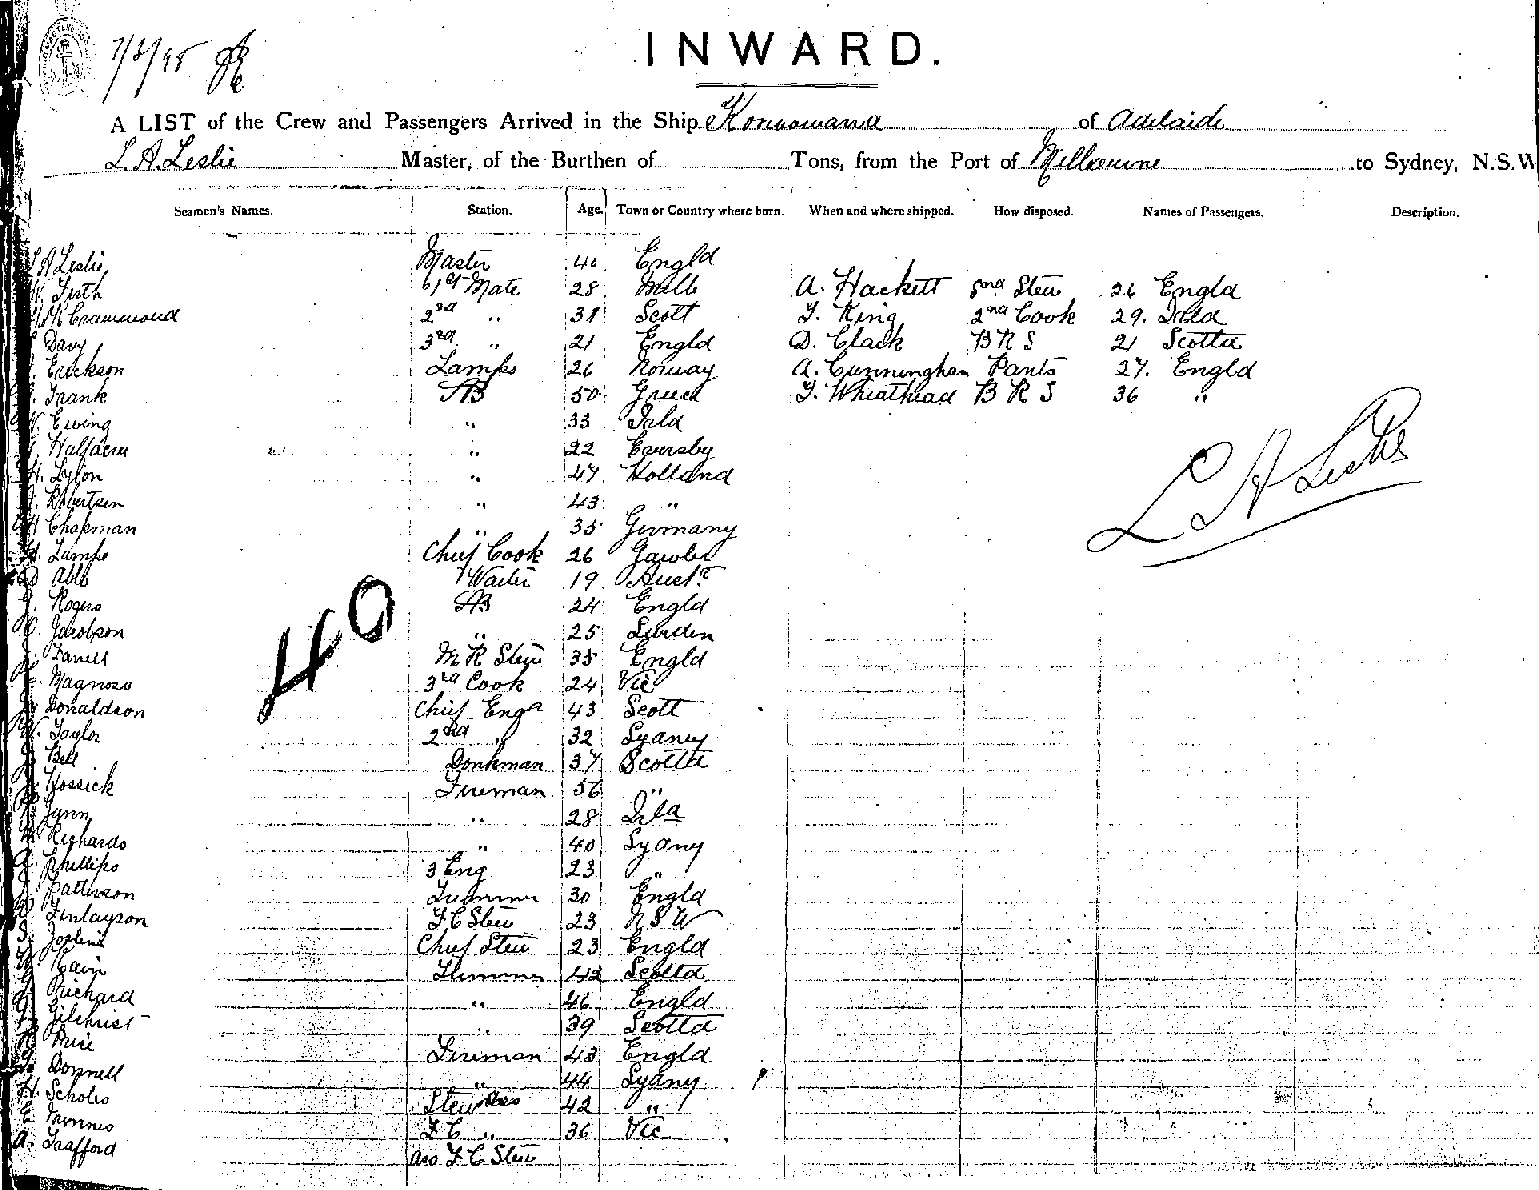 7/2/98
INWARD.
A LIST of the Crew and Passengers Arrived in the Ship Konoowarra of Adelaide
L. A. Leslie Master, of the Burthen of Tons, from the Port of Melbourne to Sydney, N.S.W
Seamen's Names. Station. Age. Town or Country where born. When and where shipped. How disposed. Names of Passengers. Description.
L A Leslie Master Engld
Firth 1st Mate 28 Melb A. Hackett Stew 26 Engld
Crammond 2nd " Scott King 2nd Cook 29. Irld
Davy 3rd " 21 Engld D. Clack B R S 21 Scottd
Erickson Lamps 26 Norway A. Cunningham Pants 27. Engld
Frank AB 50 Greece Wheathead B R S 36 "
Ewing " 33 Irld
Halfacre " 22 
Lylon " 47 Holland
Robertson " 43 "
Chapman " 35 Germany
Chief Cook 26 Gawler
Abb Waiter 19 Austr
Rogers AB 24 Engld
Jacobson " 25 Sweden
40
Farrell M R Stew 35 Engld
Magnoso 3rd Cook 24 Vic
Donaldson Chief Engr 43 Scott
Taylor 2nd " 32 Sydney
Bell Donkman 37 Scottd
Hossick Fireman 56 "
Lynn " 28 Irld
Richards " 40 Sydny
Phillips 3 Eng 23 "
Patterson 30 Engld
Finlayson F C Stew 23 N S W
Chief Stew 23 Engld
Cain 42 Scotld
Richard " 46 Engld
Gilchrist " 39 Scotld
Fireman 43 Engld
Donnell " 44 Sydny
Scholes Stewdess 42 "
Morris F C " 36 Vic
Trafford Ass F C Stew
L A Leslie